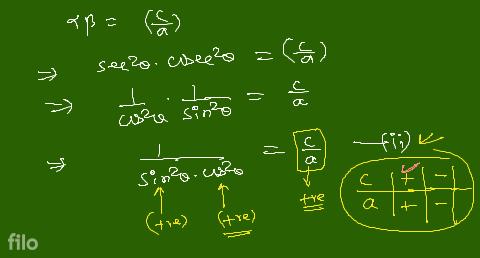 αβ = (c/a)
⇒ sec²θ · cosec²θ = (c/a)
⇒ 1/cos²θ · 1/sin²θ = c/a
⇒ 1/(sin²θ · cos²θ) = c/a —(ii)
(+ve) (+ve) +ve
c + -
a + -
filo